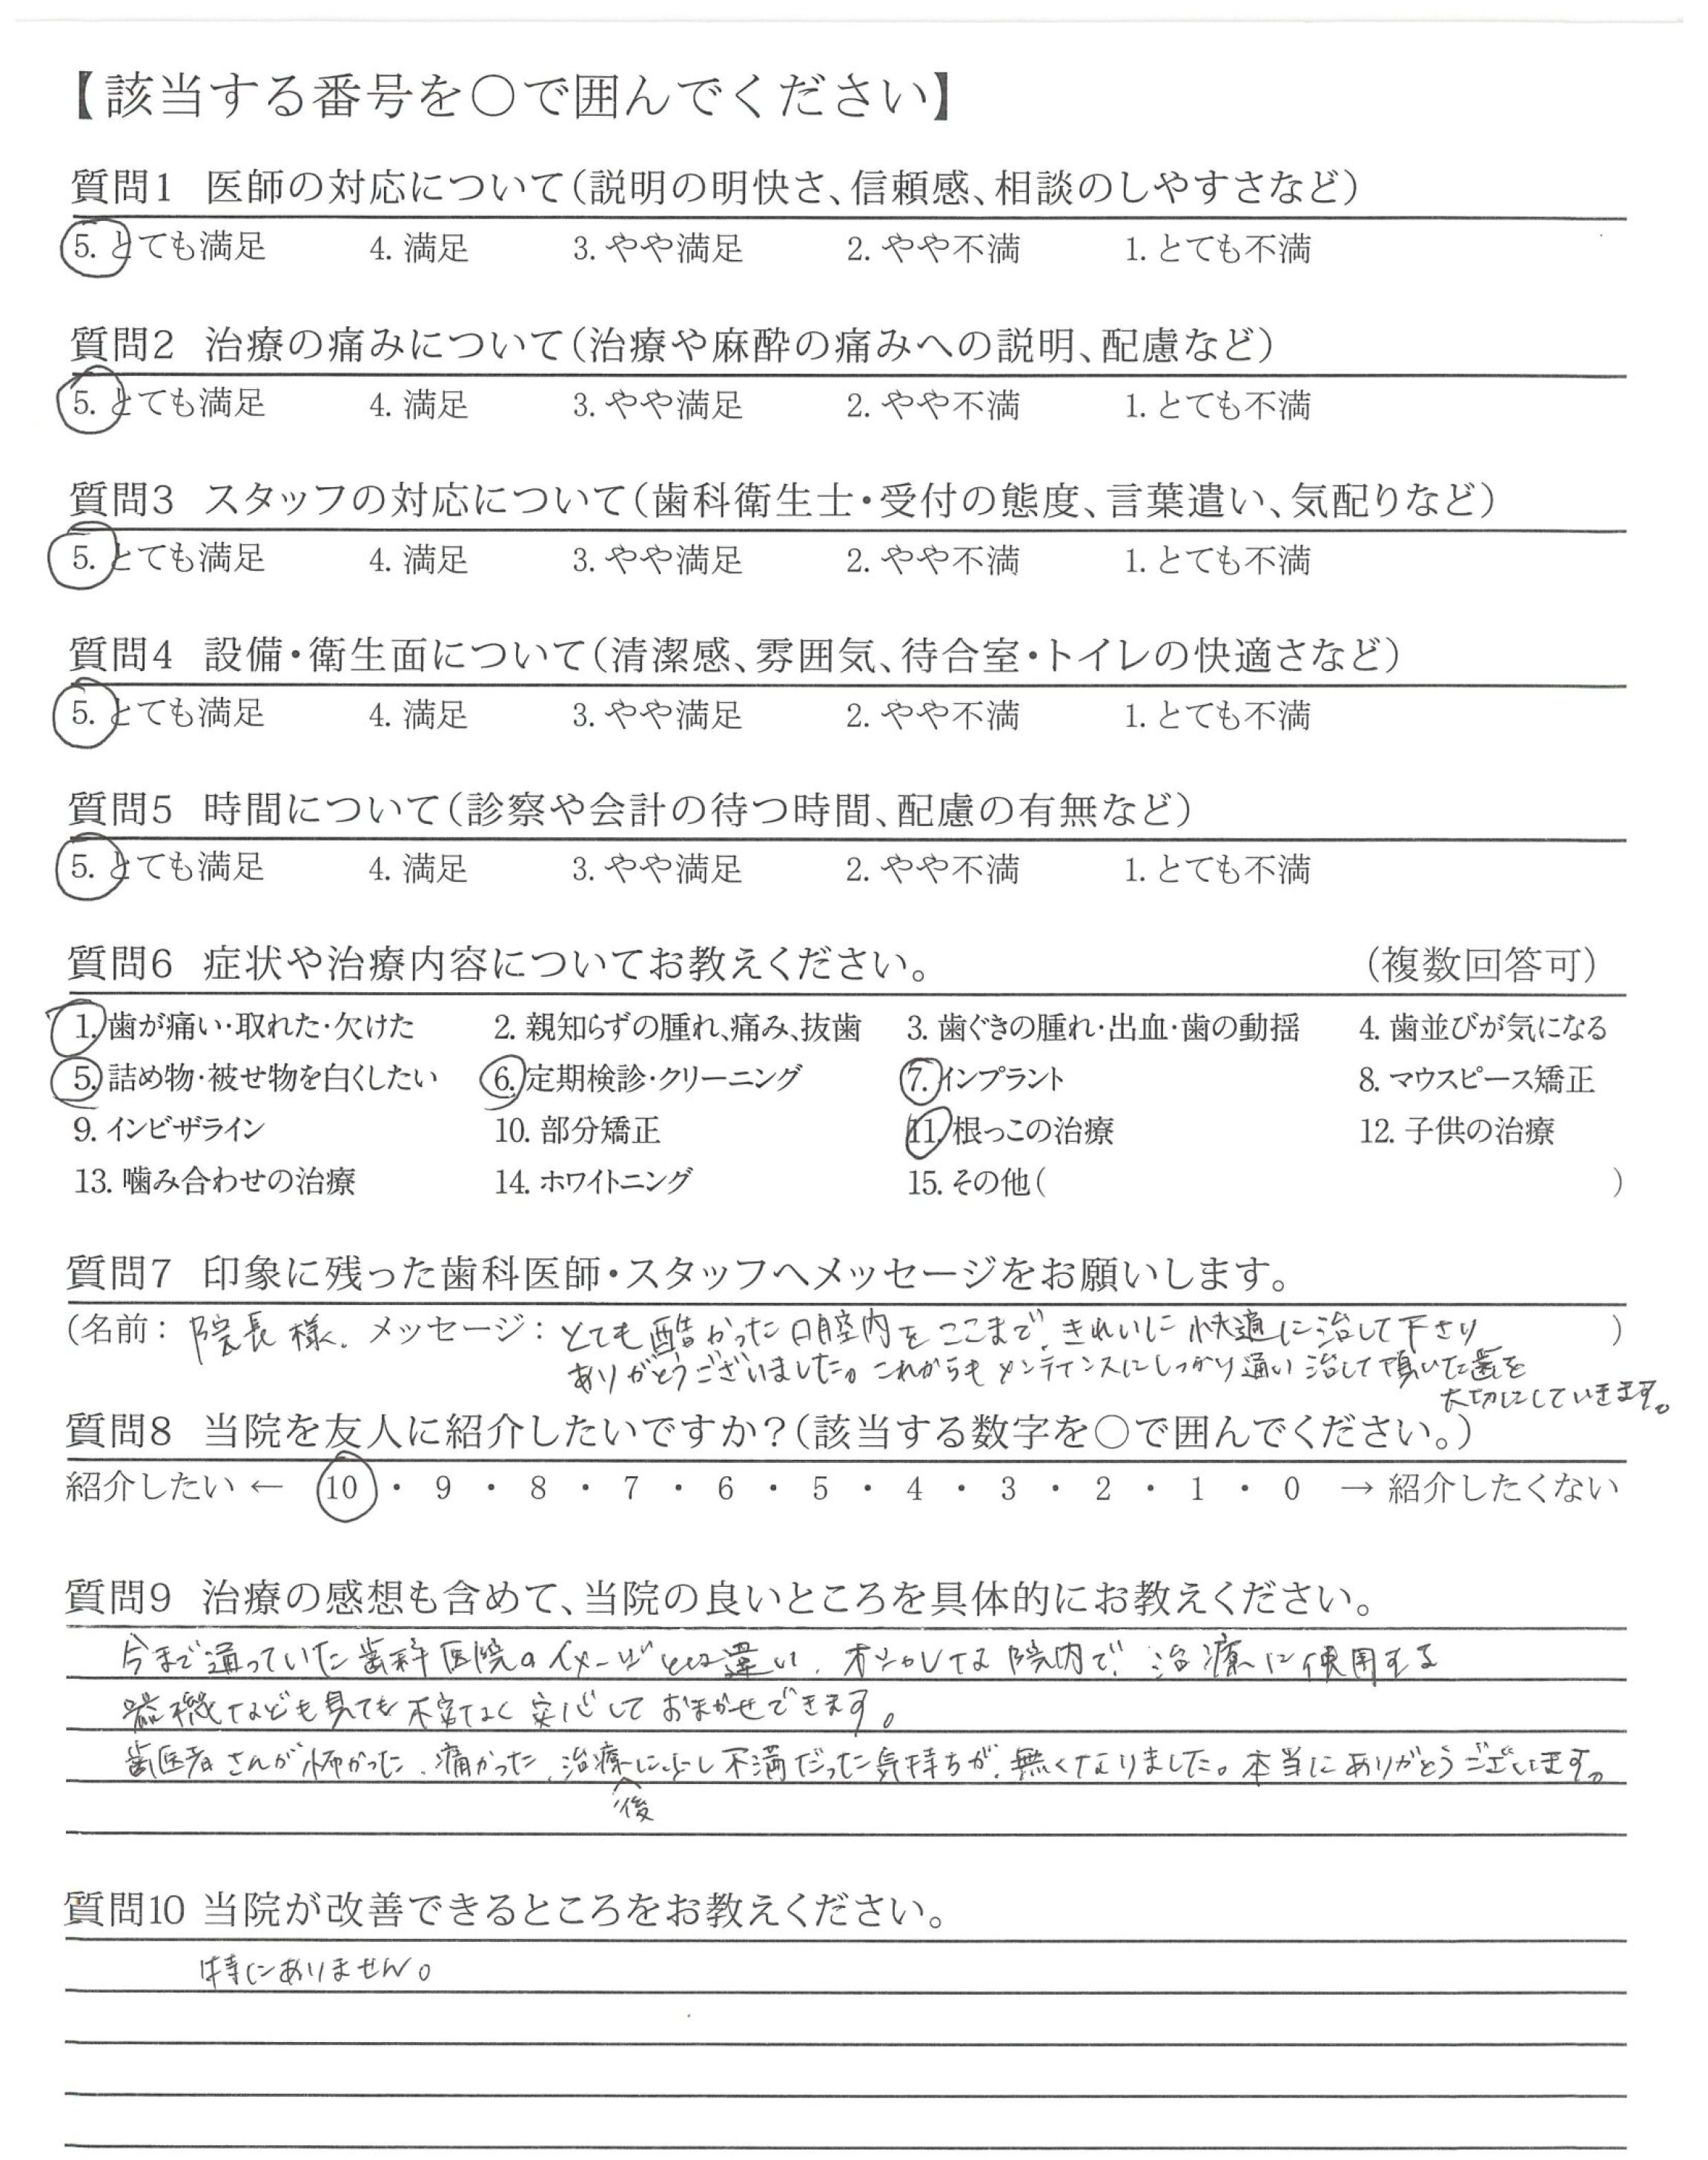 【該当する番号を〇で囲んでください】
質問1 医師の対応について（説明の明快さ、信頼感、相談のしやすさなど）
5. とても満足 4. 満足 3. やや満足 2. やや不満 1. とても不満
質問2 治療の痛みについて（治療や麻酔の痛みへの説明、配慮など）
5. とても満足 4. 満足 3. やや満足 2. やや不満 1. とても不満
質問3 スタッフの対応について（歯科衛生士・受付の態度、言葉遣い、気配りなど）
5. とても満足 4. 満足 3. やや満足 2. やや不満 1. とても不満
質問4 設備・衛生面について（清潔感、雰囲気、待合室・トイレの快適さなど）
5. とても満足 4. 満足 3. やや満足 2. やや不満 1. とても不満
質問5 時間について（診察や会計の待つ時間、配慮の有無など）
5. とても満足 4. 満足 3. やや満足 2. やや不満 1. とても不満
質問6 症状や治療内容についてお教えください。 （複数回答可）
1. 歯が痛い・取れた・欠けた 2. 親知らずの腫れ、痛み、抜歯 3. 歯ぐきの腫れ・出血・歯の動揺 4. 歯並びが気になる
5. 詰め物・被せ物を白くしたい 6. 定期検診・クリーニング 7. インプラント 8. マウスピース矯正
9. インビザライン 10. 部分矯正 11. 根っこの治療 12. 子供の治療
13. 噛み合わせの治療 14. ホワイトニング 15. その他（ ）
質問7 印象に残った歯科医師・スタッフへメッセージをお願いします。
（名前：院長様. メッセージ：とても酷かった口腔内をここまで、きれいに快適に治して下さり ）
ありがとうございました。これからもメンテインスにしっかり通い治して頂いた歯を
大切にしていきます。
質問8 当院を友人に紹介したいですか？（該当する数字を〇で囲んでください。）
紹介したい ← 10 ・ 9 ・ 8 ・ 7 ・ 6 ・ 5 ・ 4 ・ 3 ・ 2 ・ 1 ・ 0 → 紹介したくない
質問9 治療の感想も含めて、当院の良いところを具体的にお教えください。
今まで通っていた歯科医院のイメージとは違い、オシャレな院内で、治療に使用する
器機なども見ても不安なく安心しておまかせできます。
歯医者さんが怖かった、痛かった、治療後に少し不満だった気持ちが、無くなりました。本当にありがとうございます。
質問10 当院が改善できるところをお教えください。
特にありません。